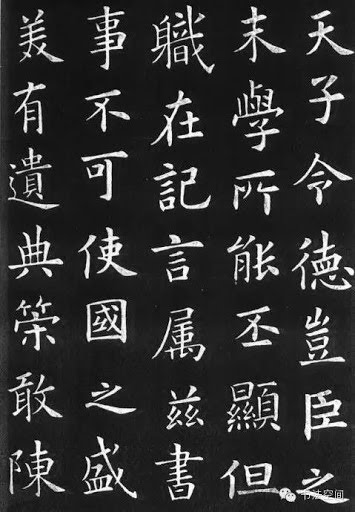 天子令德豈臣之
末學所能丕顯但
職在記言属茲書
事不可使國之盛
美有遺典策敢陳
书法空间